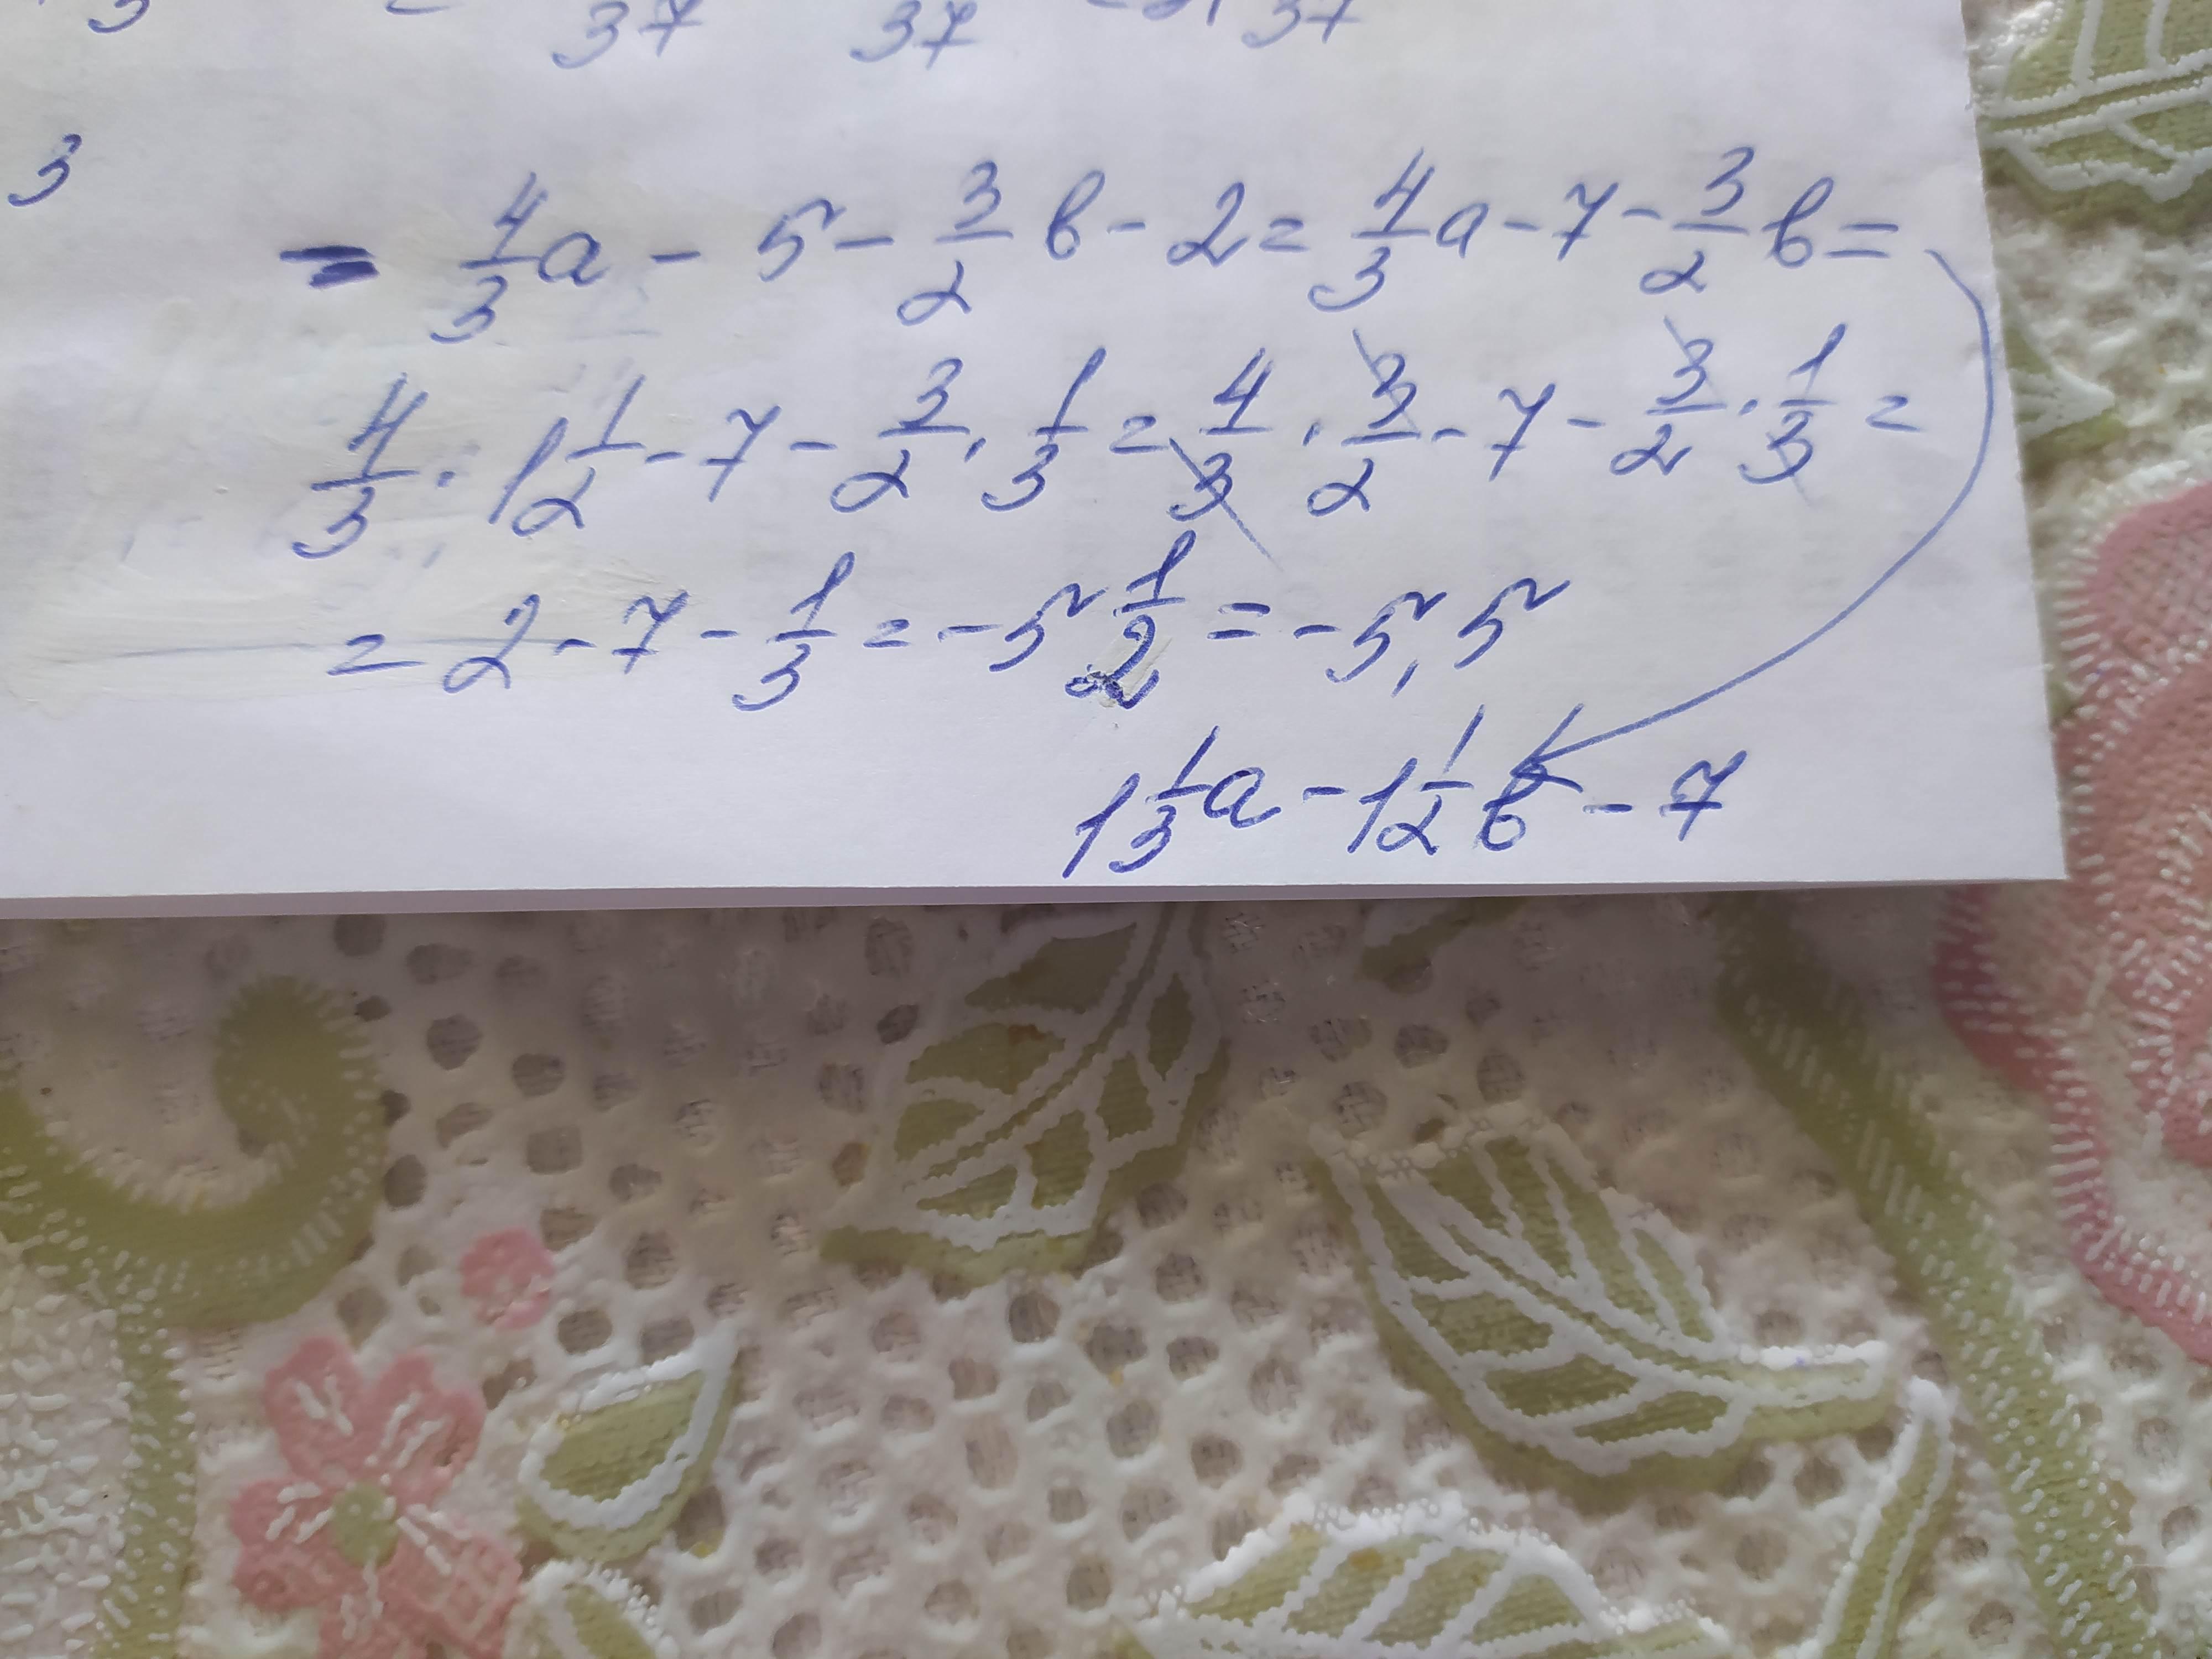 37 37 37
3
= 4/3 a - 5 - 3/2 b - 2 = 4/3 a - 7 - 3/2 b =
4/3 · 1 1/2 - 7 - 3/2 · 1/3 = 4/3 · 3/2 - 7 - 3/2 · 1/3 =
= 2 - 7 - 1/3 = -5 1/2 = -5,5
1 1/3 a - 1 1/2 b - 7